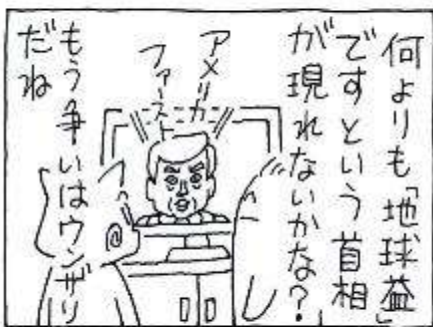 何よりも「地球益」
ですという首相
が現れないかな？
アメリカ
ファースト
もう争いはウンザリ
だね